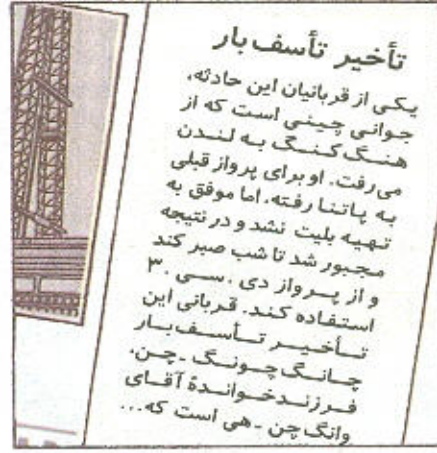 تأخیر تأسف‌بار
یکی از قربانیان این حادثه،
جوانی چینی است که از
هنگ کنگ به لندن
می‌رفت. او برای پرواز قبلی
به پاتنا رفته، اما موفق به
تهیه بلیت نشد و در نتیجه
مجبور شد تا شب صبر کند
و از پرواز دی . سی . ۳
استفاده کند. قربانی این
تأخیر تأسف‌بار
چانگ چونگ ـ چن،
فرزندخواندهٔ آقای
وانگ چن ـ هی است که...